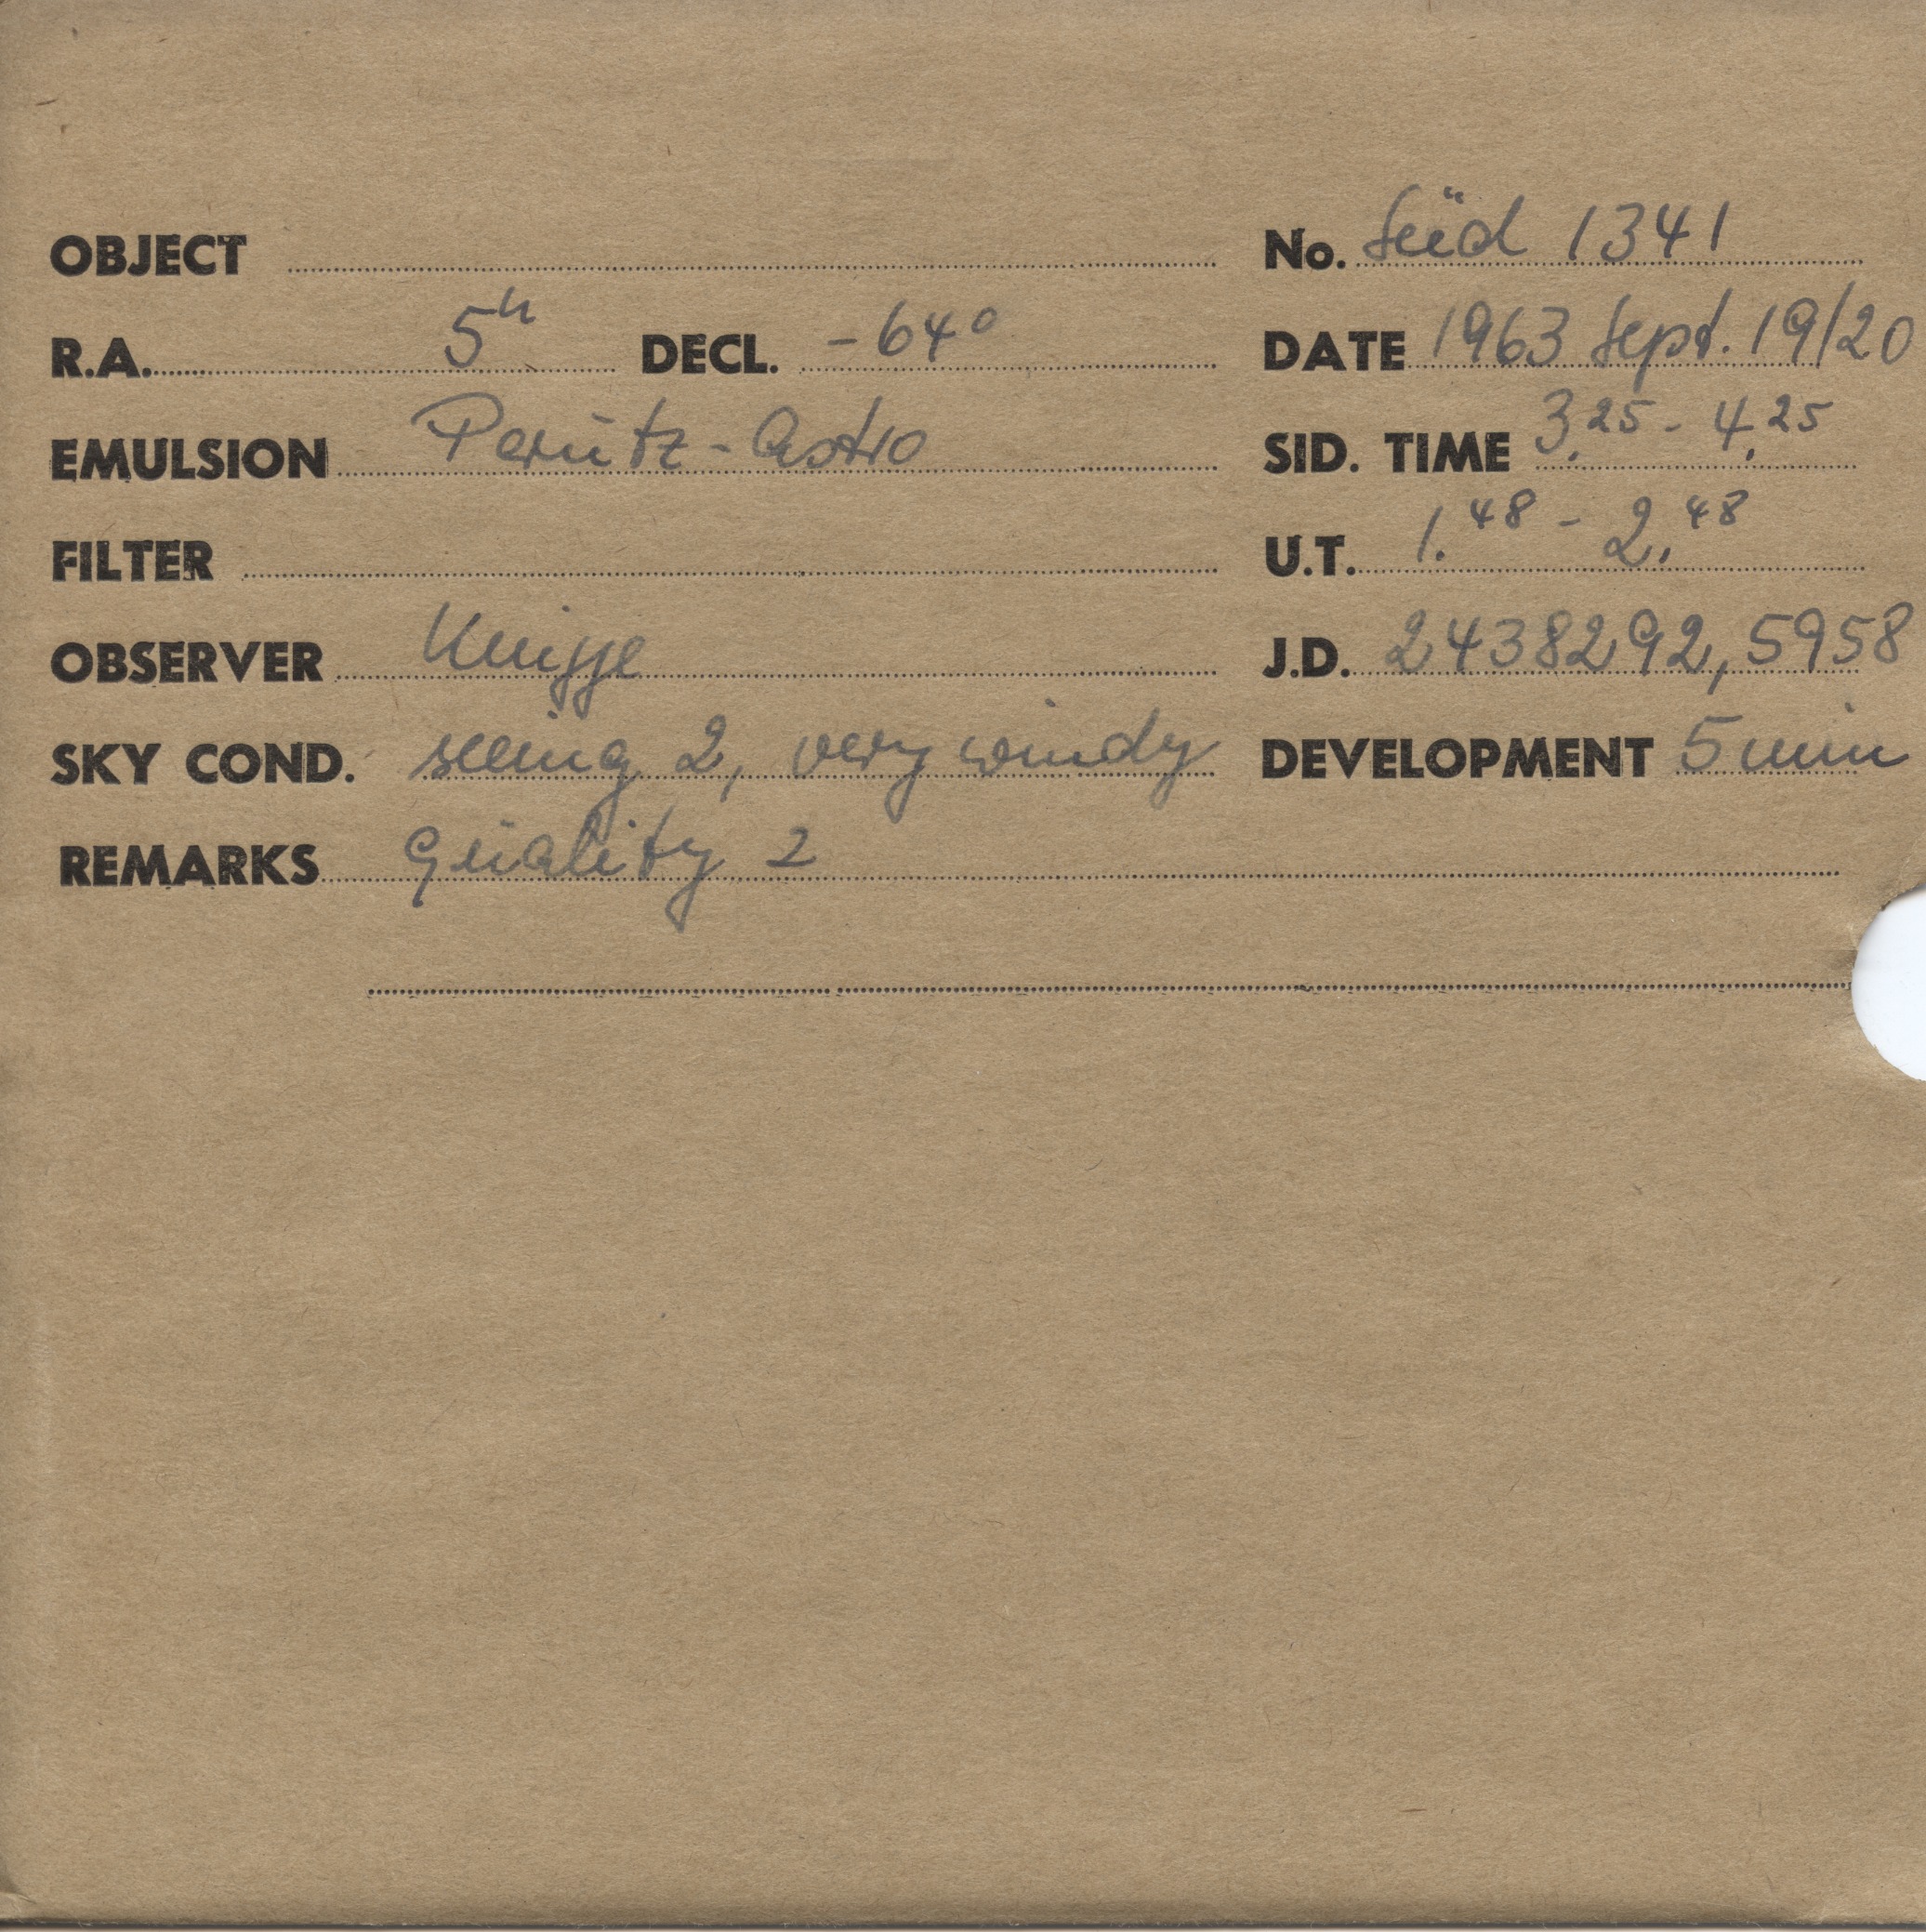 OBJECT No. Süd 1341
R.A. 5h DECL. -64° DATE 1963 Sept. 19/20
EMULSION Perutz-Astro SID. TIME 3.25 - 4.25
FILTER U.T. 1.48 - 2.48
OBSERVER Knigge J.D. 2438292,5958
SKY COND. seeing 2, very windy DEVELOPMENT 5 min
REMARKS Quality 2